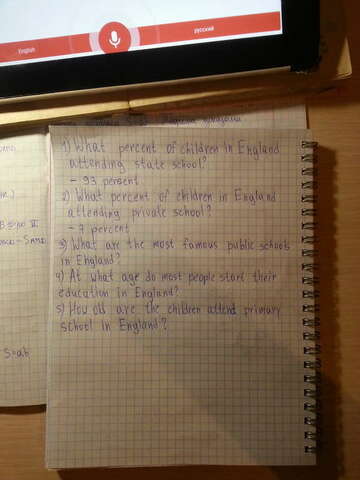 English
русский
1) What percent of children in England
attending state school?
- 93 persent
2) What percent of children in England
attending private school?
- 7 percent
3) What are the most famous public schools
in England?
4) At what age do most people start their
education in England?
5) How old are the children attend primary
school in England?
S=ab